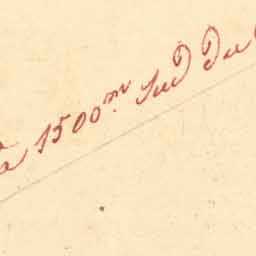 à 1500.m Sud du